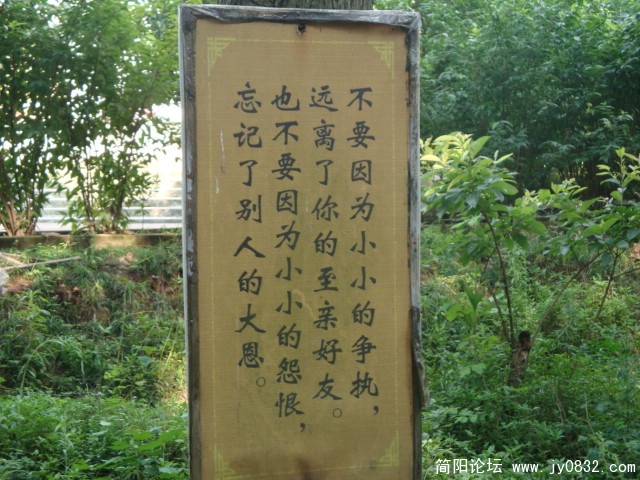 不要因为小小的争执，
远离了你的至亲好友。
也不要因为小小的怨恨，
忘记了别人的大恩。
简阳论坛 www.jy0832.com